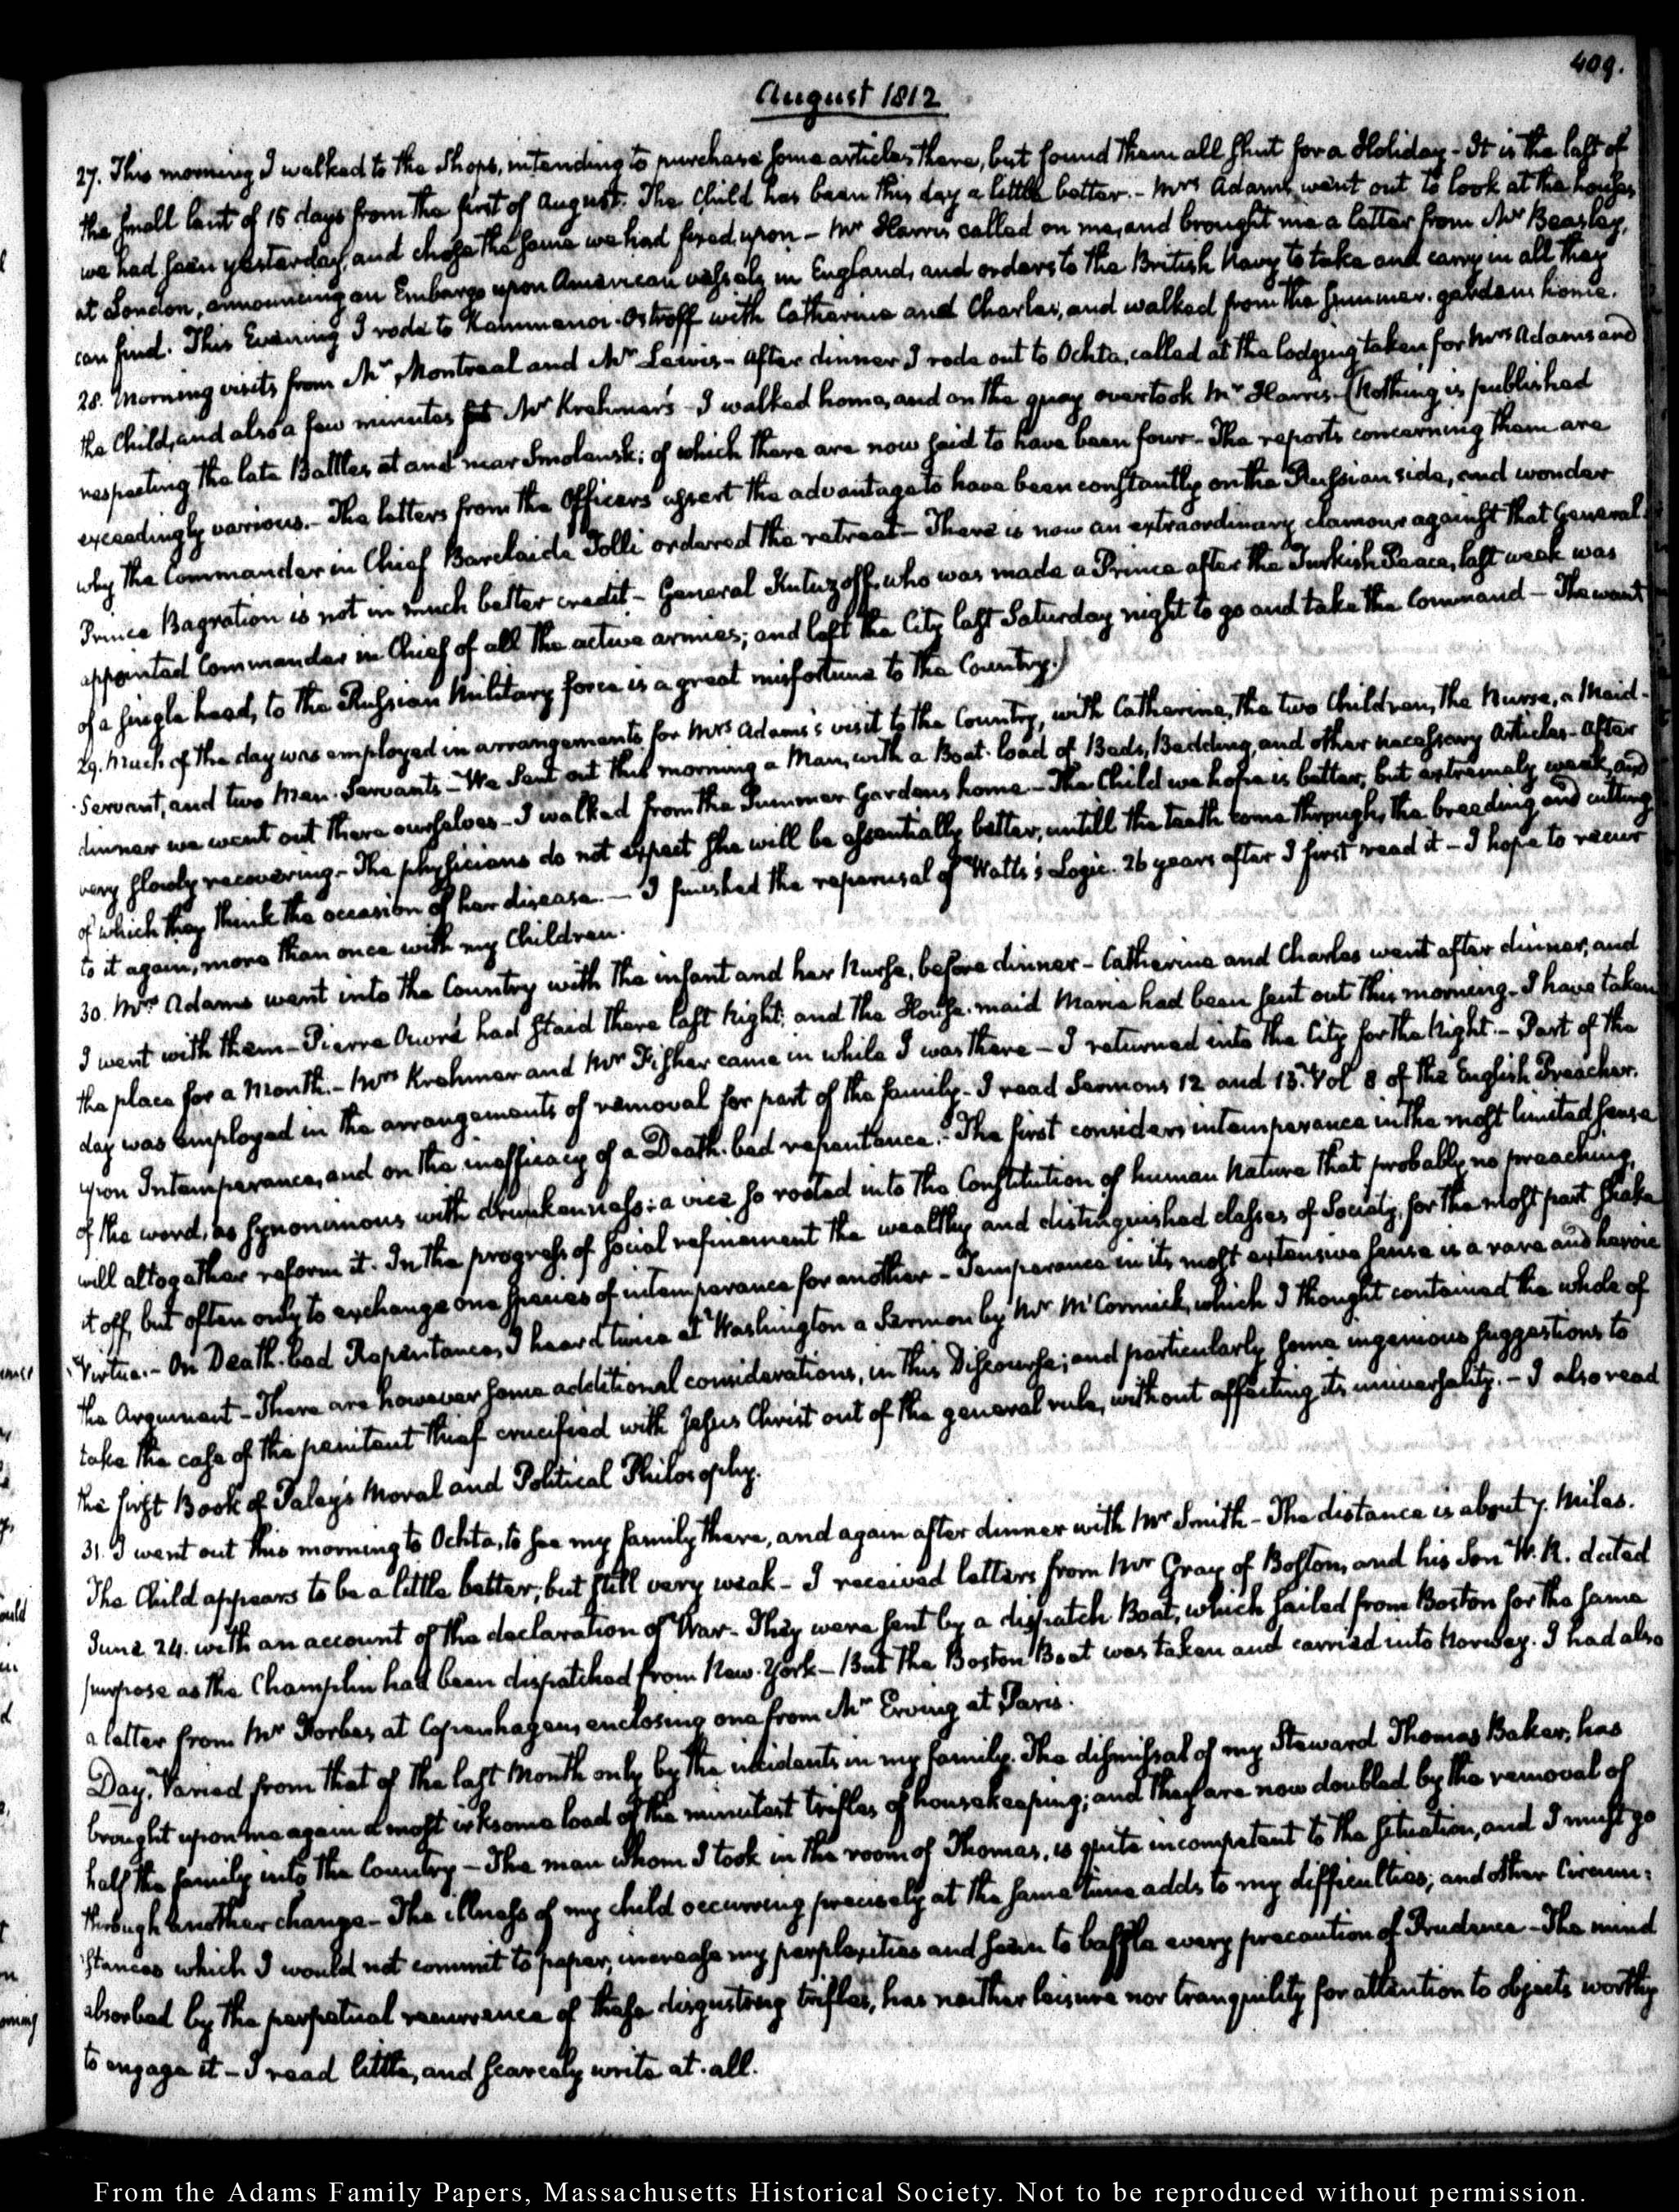 409.
August 1812
27. This morning I walked to the Shops, intending to purchase some articles there, but found them all shut for a Holiday - It is the last of
the small lent of 15 days from the first of August. The Child has been this day a little better. - Mrs Adams went out to look at the houses
we had seen yesterday, and chose the same we had fixed upon - Mr Harris called on me, and brought me a letter from Mr Beasley,
at London, announcing an Embargo upon American vessels in England, and orders to the British Navy to take and carry in all they
can find. This Evening I rode to Kammenoi-Ostroff with Catherine and Charles, and walked from the Summer-gardens home.
28. Morning visits from Mr Montreal and Mr Lewis - After dinner I rode out to Ochta, called at the lodging taken for Mrs Adams and
the Child, and also a few minutes at Mr Krehmer's - I walked home, and on the quay overtook Mr Harris - (Nothing is published
respecting the late Battles at and near Smolensk; of which there are now said to have been four - The reports concerning them are
exceedingly various. - The letters from the Officers assert the advantage to have been constantly on the Russian side, and wonder
why the Commander in Chief Barclai de Tolli ordered the retreat - There is now an extraordinary clamour against that General.
Prince Bagration is not in much better credit - General Kutuzoff, who was made a Prince after the Turkish Peace, last week was
appointed Commander in Chief of all the active armies; and left the City last Saturday night to go and take the Command - The want
of a single head, to the Russian Military force is a great misfortune to the Country.)
29. Much of the day was employed in arrangements for Mrs Adams's visit to the Country, with Catherine, the two Children, the Nurse, a Maid-
Servant, and two Men-Servants - We sent out this morning a Man, with a Boat-load of Beds, Bedding, and other necessary Articles - After
dinner we went out there ourselves - I walked from the Summer Gardens home - The Child we hope is better, but extremely weak, and
very slowly recovering - The physicians do not expect she will be essentially better, untill the teeth come through, the breeding and cutting
of which they think the occasion of her disease. - I finished the reperusal of Watts's Logic. 26 years after I first read it - I hope to recur
to it again, more than once with my Children.
30. Mrs Adams went into the Country with the infant and her Nurse, before dinner - Catherine and Charles went after dinner, and
I went with them - Pierre Aworé had staid there last Night; and the House-maid Maria had been sent out this morning - I have taken
the place for a Month. - Mrs Krehmer and Mr Fisher came in while I was there - I returned into the City for the Night. - Part of the
day was employed in the arrangements of removal for part of the family - I read Sermons 12 and 13. Vol 8 of the English Preacher.
upon Intemperance, and on the inefficacy of a Death-bed repentance. - The first considers intemperance in the most limited sense
of the word, as synonimous with drunkenness: a vice so rooted into the Constitution of human Nature that probably no preaching,
will altogether reform it. In the progress of social refinement the wealthy and distinguished classes of Society, for the most part shake
it off, but often only to exchange one species of intemperance for another - Temperance in its most extensive sense is a rare and heroic
Virtue. - On Death-bed Repentance, I heard twice at Washington a Sermon by Mr McCormick, which I thought contained the whole of
the Argument - There are however some additional considerations, in this Discourse; and particularly some ingenious suggestions to
take the case of the penitent thief crucified with Jesus Christ out of the general rule, without affecting its universality. - I also read
the first Book of Paley's Moral and Political Philosophy.
31. I went out this morning to Ochta, to see my family there, and again after dinner with Mr Smith - The distance is about 7. Miles.
The Child appears to be a little better, but still very weak - I received letters from Mr Gray of Boston, and his Son W. R. dated
June 24. with an account of the declaration of War - They were sent by a dispatch Boat, which sailed from Boston for the same
purpose as the Champlin had been dispatched from New-York - But the Boston Boat was taken and carried into Norway. I had also
a letter from Mr Forbes at Copenhagen, enclosing one from Mr Erving at Paris.
Day. Varied from that of the last Month only by the incidents in my family. The dismissal of my Steward Thomas Baker, has
brought upon me again a most irksome load of the minutest trifles of housekeeping; and they are now doubled by the removal of
half the family into the Country - The man whom I took in the room of Thomas, is quite incompetent to the situation, and I must go
through another change - The illness of my child occurring precisely at the same time adds to my difficulties; and other Circum:
stances which I would not commit to paper, increase my perplexities and seem to baffle every precaution of Prudence - The mind
absorbed by the perpetual recurrence of these disgusting trifles, has neither leisure nor tranquility for attention to objects worthy
to engage it - I read little, and scarcely write at-all.
From the Adams Family Papers, Massachusetts Historical Society. Not to be reproduced without permission.